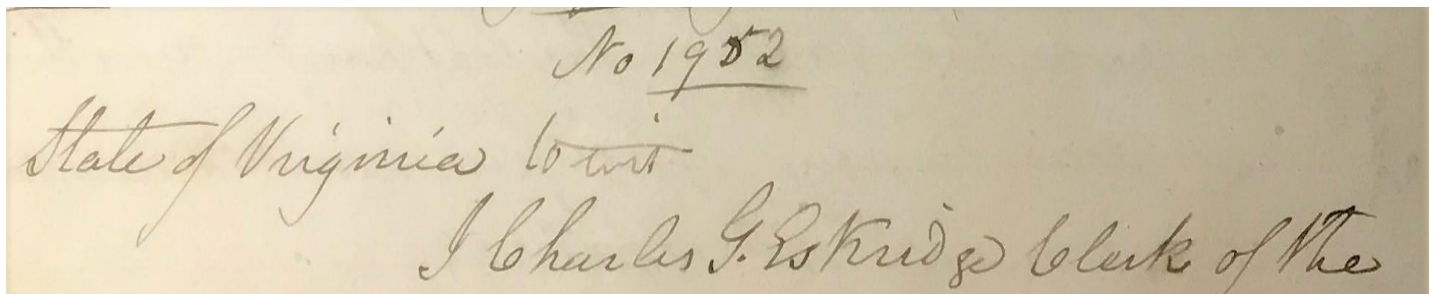 No 1952
State of Virginia to wit
I Charles G. Eskridge Clerk of the